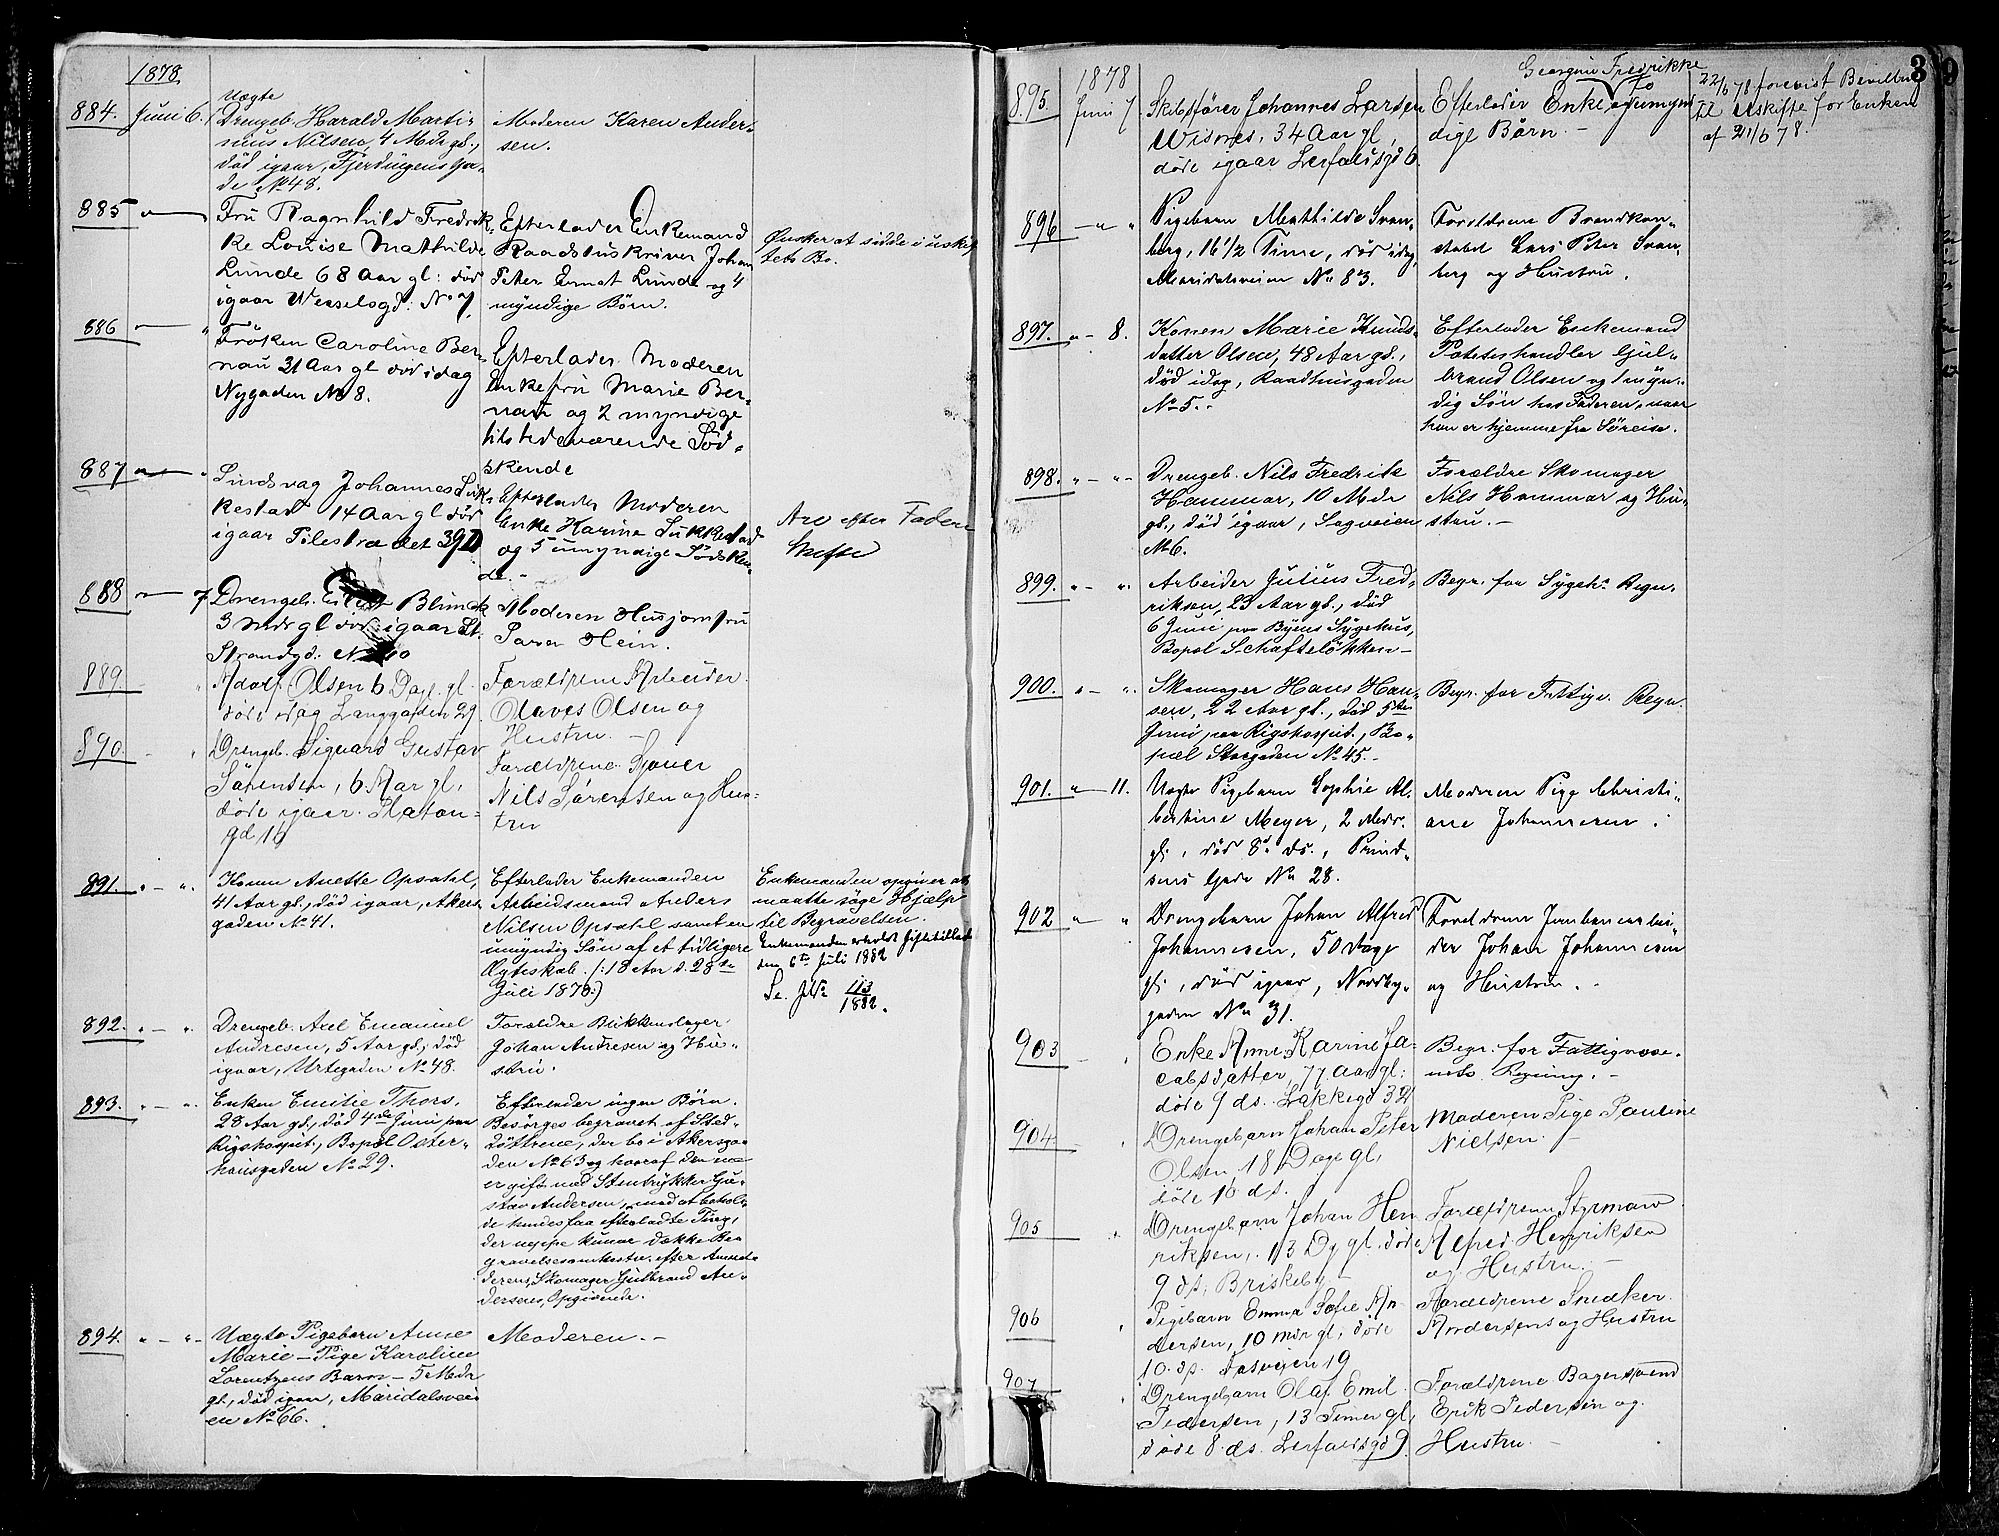 1878
884. Juni 6. Uægte
Drengeb. Harald Marti-
nus Nilsen, 4 Mdr gl.,
død igaar, Fjerdingens Ga-
de No 48.
Moderen Karen Ander-
sen.
885 " — Fru Ragnhild Fredrik-
ke Louise Mathilde
Lunde 68 Aar gl: død
igaar Wesselsgd: No 7.
Efterlader Enkemand
Raadstuskriver Johan
Peter Ernst Lunde og 4
myndige Børn.
Ønsker at sidde i uskif-
tets Bo.
886 — " Frøken Caroline Ber-
nau 31 Aar gl død idag
Nygaden No 8.
Efterlader Moderen
Enkefru Marie Ber-
nau og 2 myndige
tilstedeværende Sød-
skende
887 " — " Sindsvag Johannes Suk-
kestad 14 Aar gl død
igaar Pilestrædet 39 D
Efterlader Moderen
Enke Karine Sukkestad
og 5 umyndige Sødsken-
de. "
Arv efter Fadere
Skifte
888 " — 7 Drengeb. Blunck
3 Mdr gl død igaar St.
Strandgd: No 10
Moderen Husjomfru
Sara Hein.
889. — " Adolf Olsen 6 Dage gl.
døde idag Langgaden 29.
Forældrene Arbeider
Olaves Olsen og
Hustru. —
890. — " Drengeb. Siguard Gustav
Sørensen, 6 Aar gl,
døde igaar. Platou-
gd 16
Forældrene Sjouer
Nils Sørensen og Hus-
tru
891. " — " Konen Anette Opsahl,
41 Aar gl., død igaar, Akers-
gaden No 41.
Efterlader Enkemanden
Arbeidsmand Anders
Nilsen Opsahl samt en
umyndig Søn af et tidligere
Ægteskab. (: 18 Aar d. 28de
Juli 1878:)
Enkemanden opgiver at
maatte søge Hjælp
til Begravelsen.
Enkemanden erholdt Giftetilladelse
den 6te Juli 1882
Se. JNo 113/1882.
892. " — " Drengeb. Axel Emanuel
Andresen, 5 Aar gl., død
igaar, Urtegaden No 48.
Forældre Blikkenslager
Johan Andresen og Hu-
stru.
893. " — " Enken Emilie Thors,
28 Aar gl., død 4de Juni paa
Rigshospit., Bopæl Oster-
hausgaden No 29.
Efterlader ingen Børn.
Besørges begravet af Sted-
døttrene, der bo i Akersga-
den No 63 og hvoraf den ene
er gift med Stentrykker Gu-
stav Andersen, mod at behol-
de hendes faa efterladte Tøi,
der neppe kunne dække Be-
gravelsesomkostn. efter Anmel-
derens, Skomager Gulbrand An-
dersens, Opgivende.
894. " — " Uægte Pigebarn Anne
Marie — Pige Karoline
Lorentzens Barn — 5 Mdr
gl., død igaar, Maridalsvei-
en No 66.
Moderen. —
39
1878
895. Juni 7 Skibsfører Johannes Larsen
Wisnes, 34 Aar gl,
døde igaar Lerfaldsgd 6
Georgine Fredrikke
Efterlader Enke to umyn-
dige Børn. —
22/6 78 forevist Bevilling
til Uskifte for Enken
af 21/6 78.
896 — " " Pigebarn Mathilde Svan-
berg, 16 1/2 Time, død idag,
Maridalsveien No 83.
Forældrene Brandkon-
stabel Lars Peter Svan-
berg og Hustru.
897. " — 8. Konen Marie Knuds-
datter Olsen, 48 Aar gl.,
død idag, Raadhusgaden
No 5. —
Efterlader Enkemand
Poteteshandler Gul-
brand Olsen og 1 myn-
dig Søn hos Faderen, naar
han er hjemme fra Søreise.
898. " — " Drengeb. Nils Fredrik
Hammar, 10 Mdr
gl., død igaar, Sagveien
No 6.
Forældre Skomager
Nils Hammar og Hu-
stru. —
899. " — " Arbeider Julius Fred-
riksen, 23 Aar gl., død
6 Juni paa Byens Sygehus,
Bopæl Schafteløkken —
Begr. for Sygehs Regn.
900. " — " Skomager Hans Han-
sen, 22 Aar gl., død 5te
Juni paa Rigshospit., Bo-
pæl Storgaden No 45. —
Begr. for Fattigv. Regn.
901. " — 11. Uægte Pigebarn Sophie Al-
bertine Meyer, 2 Mdr.
gl., død 8de ds., Prind-
sens Gade No 28.
Moderen Pige Christi-
ane Johannesen.
902 " " Drengebarn Johan Alfred
Johannesen, 50 Dage
gl., død igaar, Nordby-
gaden No 31.
Forældrene Jernbanearbei-
der Johan Johannesen
og Hustru. —
903 — " Enke Anne Karine Ja-
cobsdatter, 77 Aar gl:
døde 9 ds. Lakkegd 32
Begr. for Fattigvæse-
nets Regning. —
904 — " Drengebarn Johan Peter
Olsen, 18 Dage gl,
døde 10 ds.
Moderen Pige Pauline
Nielsen. —
905 — " Drengebarn Johan Hen-
riksen, 13 Dg gl. døde
9 ds, Briskeby —
Forældrene Styrmand
Alfred Henriksen
og Hustru. —
906 — " Pigebarn Emma Sofie An-
dersen, 10 mdr gl, døde
10. ds. Fosveien 19
Forældrene Snedker
Andersens og Hustru
907 — " Drengebarn Olaf Emil
Pedersen, 13 Timer gl,
døde 8 ds. Lerfaldsgd 9
Forældrene Bagersvend
Erik Pedersen og
Hustru. —